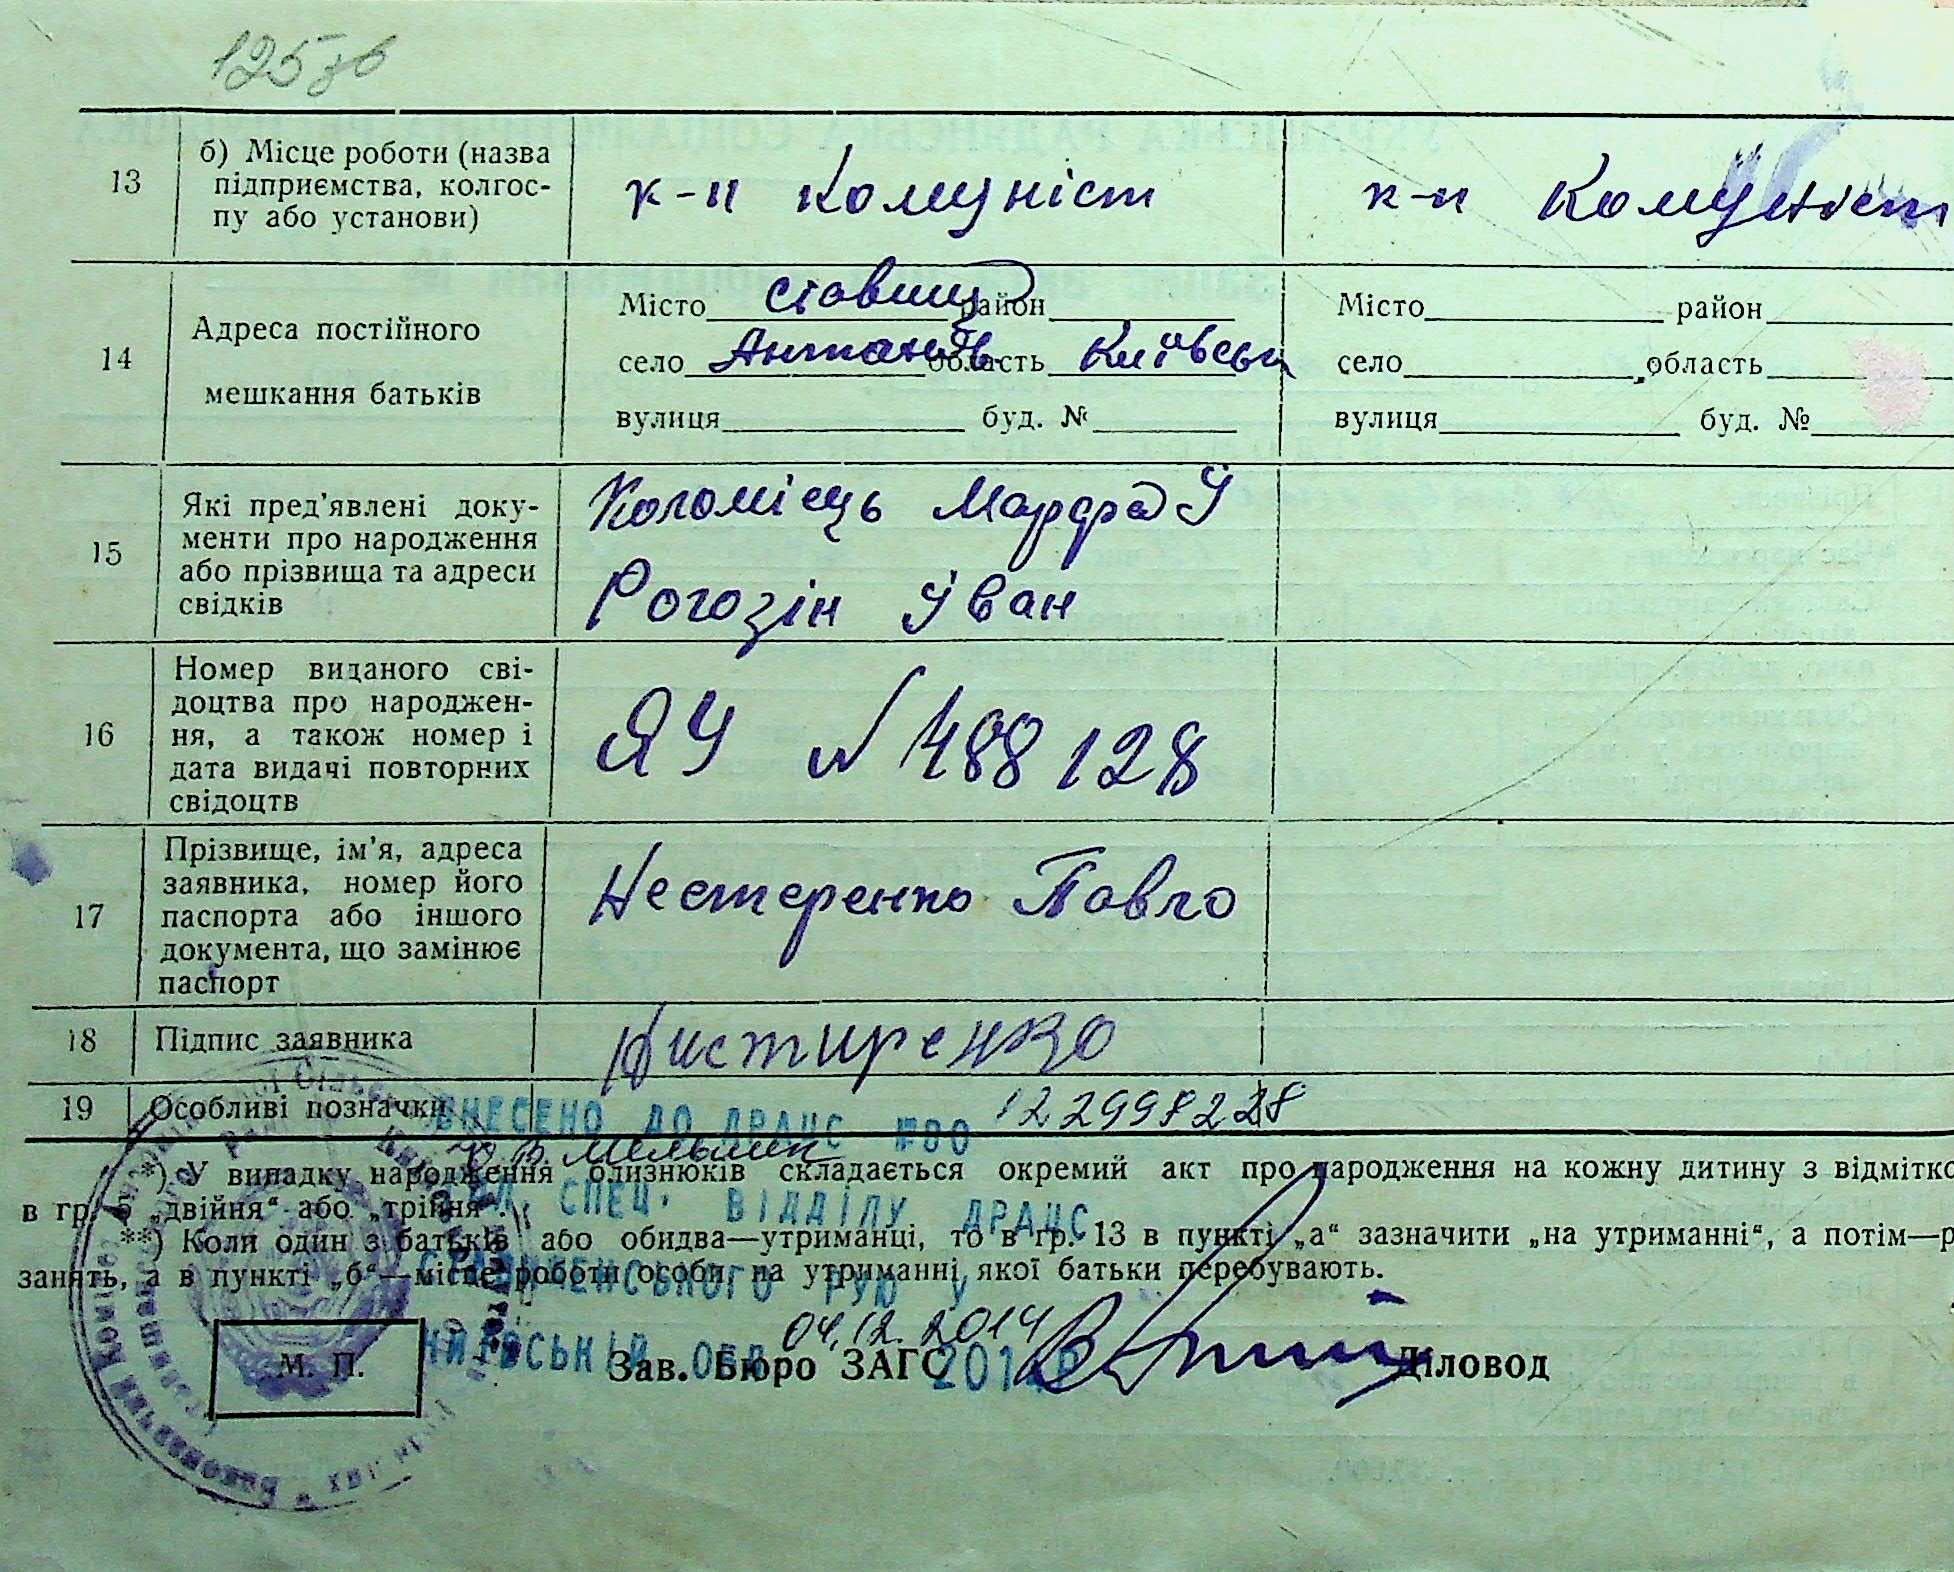 125зв
13
б) Місце роботи (назва
підприємства, колгос-
пу або установи)
к-п Комуніст
к-п Комуніст
14
Адреса постійного
мешкання батьків
Місто Ставищ район
село Антонів область Київськ
вулиця буд. №
Місто район
село область
вулиця буд. №
15
Які пред'явлені доку-
менти про народження
або прізвища та адреси
свідків
Коломієць Марфа У
Рогозін Іван
16
Номер виданого сві-
доцтва про народжен-
ня, а також номер і
дата видачі повторних
свідоцтв
ЯУ № 488128
17
Прізвище, ім'я, адреса
заявника, номер його
паспорта або іншого
документа, що замінює
паспорт
Нестеренко Павло
18
Підпис заявника
Нистиренко
19
Особливі позначки
ВНЕСЕНО ДО ДРАЦС
*) У випадку народження близнюків складається окремий акт про народження на кожну дитину з відмітко
в гр. 6 „двійня“ або „трійня“.
СПЕЦ. ВІДДІЛУ ДРАЦС
**) Коли один з батьків або обидва—утриманці, то в гр. 13 в пункті „а“ зазначити „на утриманні“, а потім—р
занять, а в пункті „б“—місце роботи особи, на утриманні якої батьки перебувають.
РУЮ У
04.12.2014
М. П.
Зав. Бюро ЗАГС
Діловод